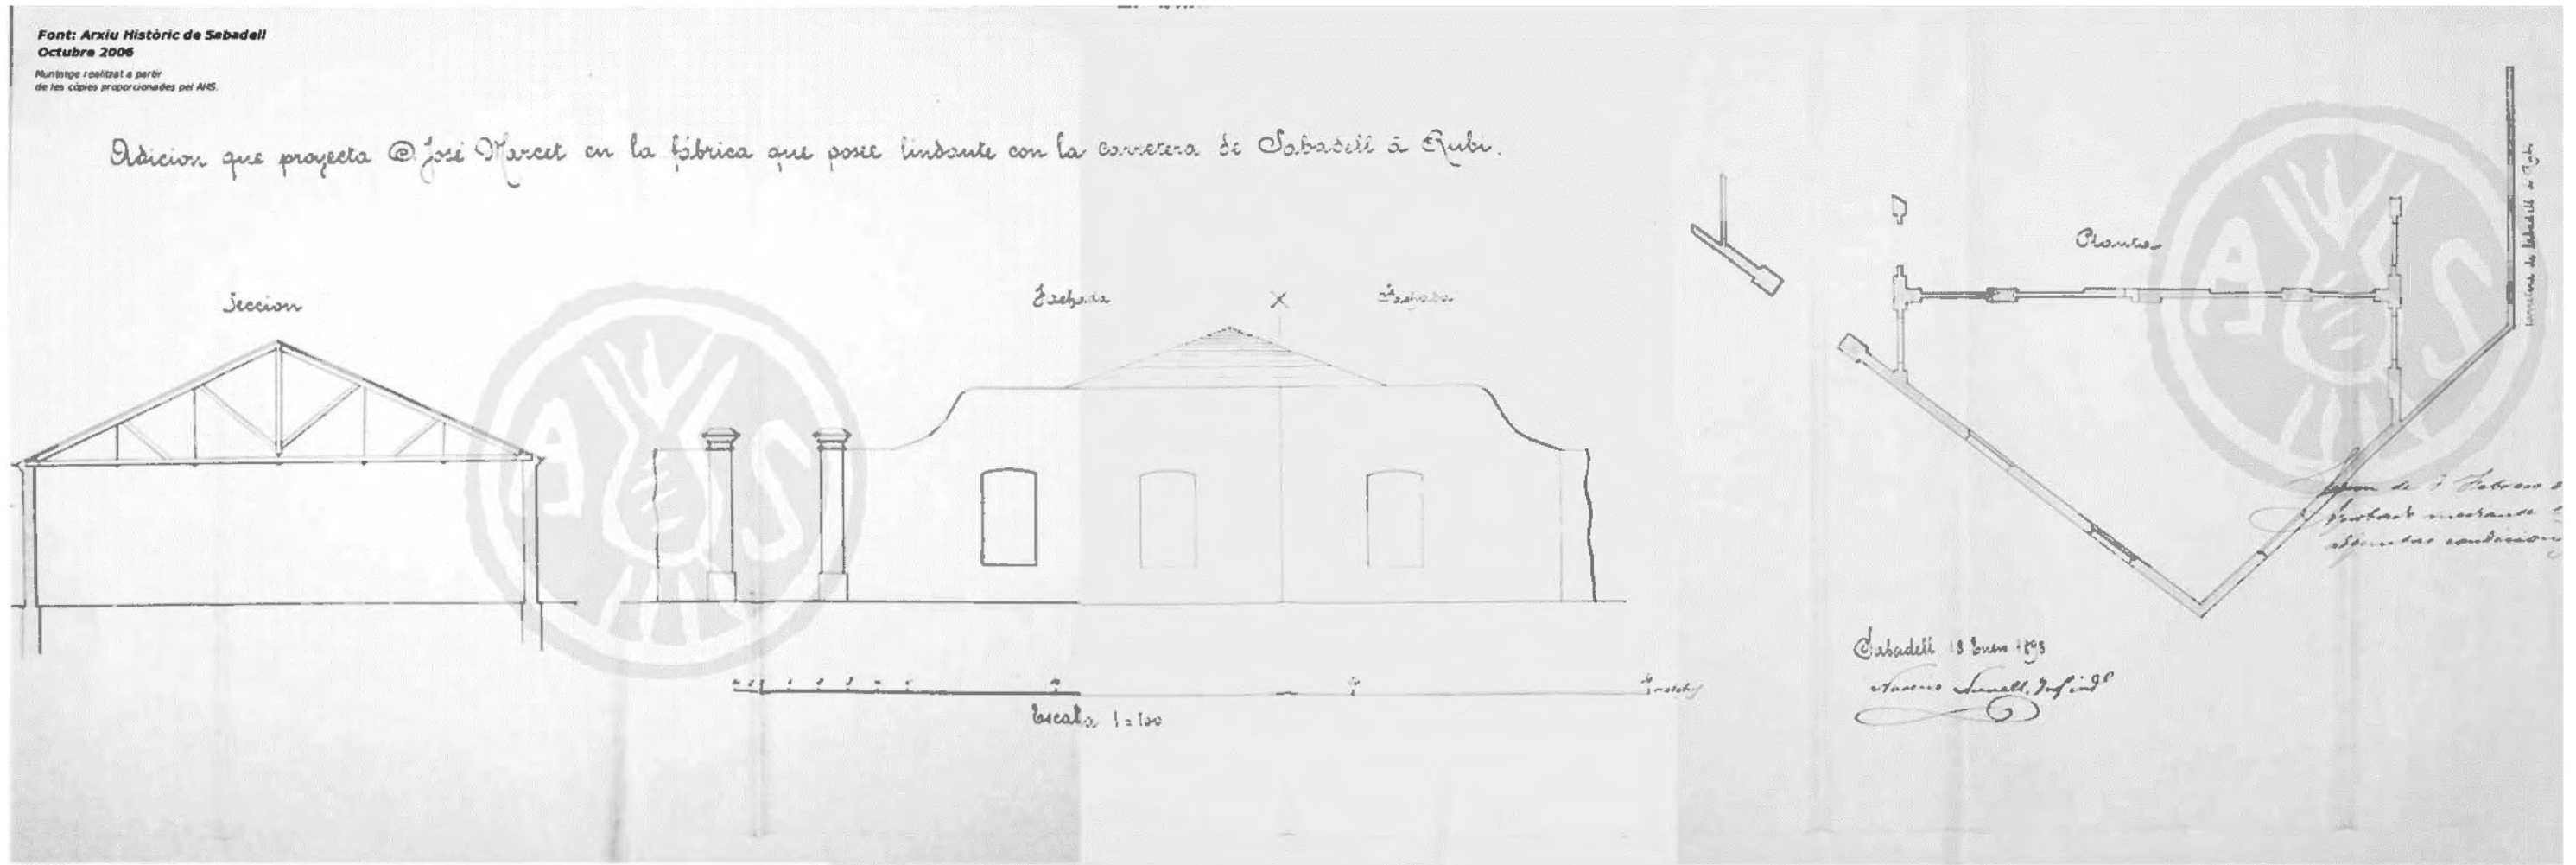 Font: Arxiu Històric de Sabadell
Octubre 2006
Muntatge realitzat a partir
de les còpies proporcionades pel AHS.
Adicion que proyecta D. José Marcet en la fábrica que posee lindante con la carretera de Sabadell á Rubí.
Seccion
Fachada
X
Fachada
Planta
Carretera de Sabadell á Rubí
A S
A S
de 7 Febrero
mediante
Sabadell 18 Enero 1893
Escala 1=100